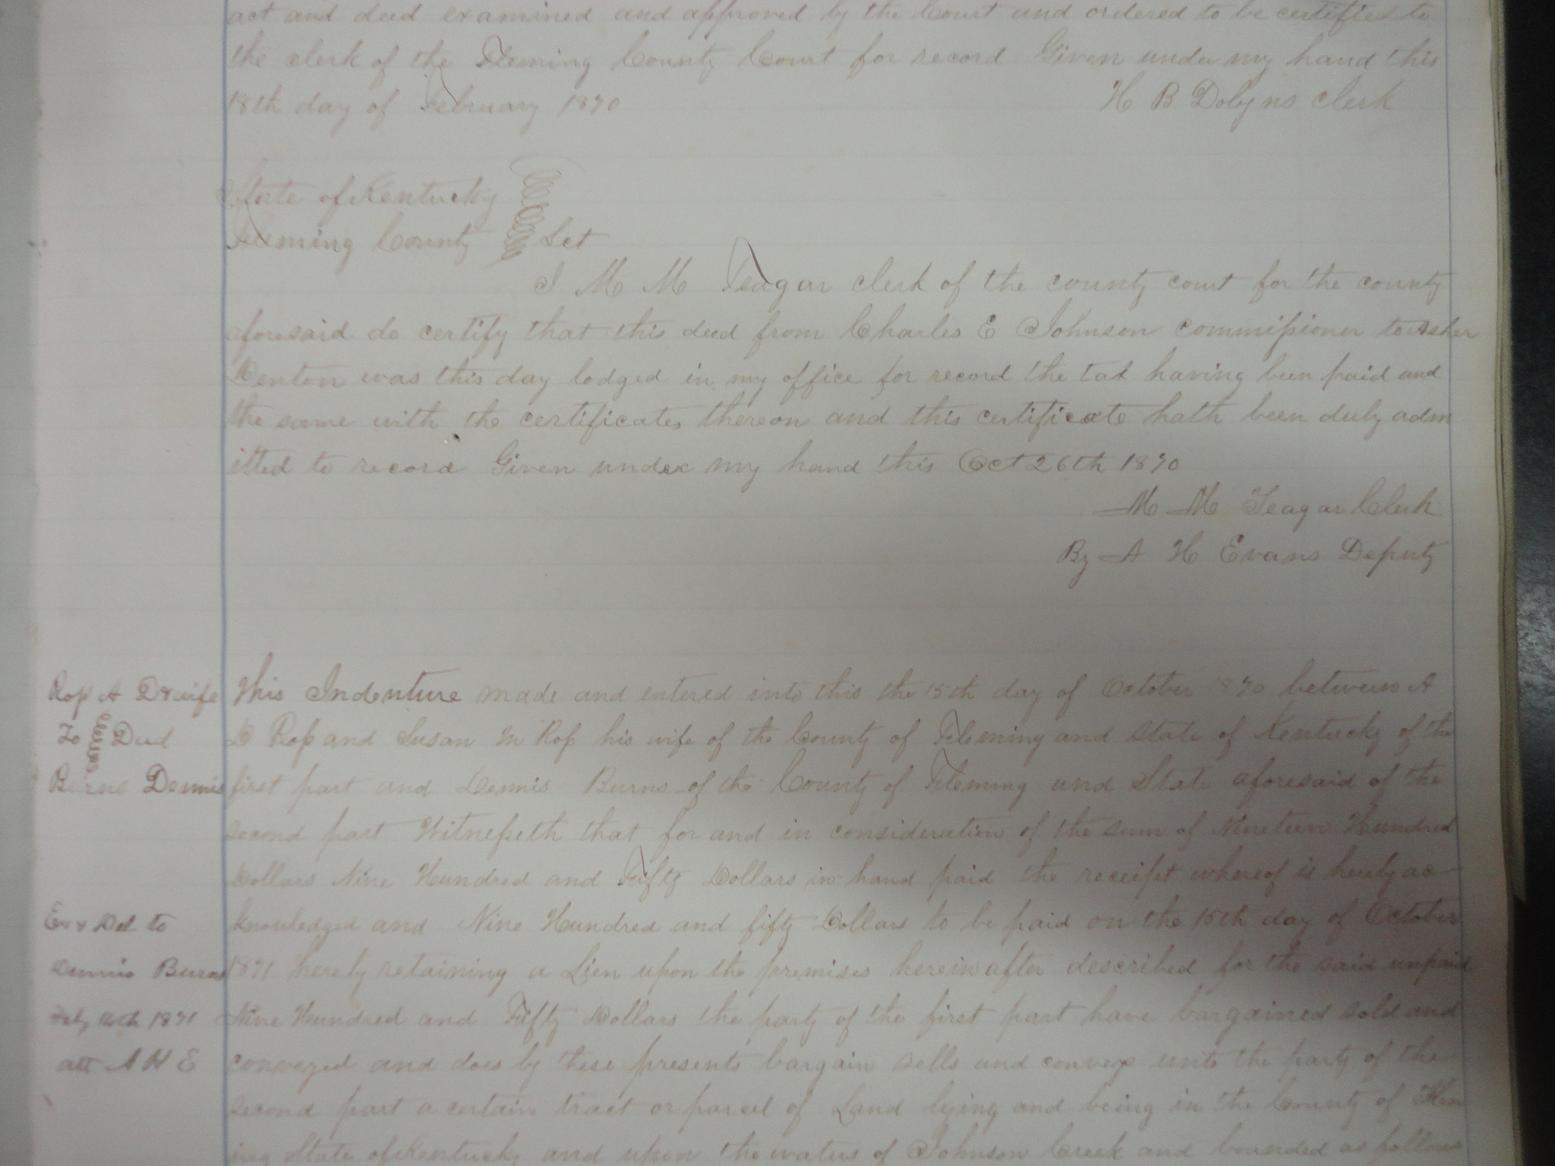 act and deed examined and approved by the Court and ordered to be certified to
the clerk of the Fleming County Court for record Given under my hand this
18th day of February 1870
H B Dobyns clerk
State of Kentucky
Fleming County Sct
I M M Teagar clerk of the county court for the county
aforesaid do certify that this deed from Charles E Johnson commissioner to Asher
Denton was this day lodged in my office for record the tax having been paid and
the same with the certificates thereon and this certificate hath been duly adm
itted to record Given under my hand this Oct 26th 1870
M M Teagar Clerk
By A H Evans Deputy
Ross A D & wife
To Deed
Burns Dennis
This Indenture made and entered into this the 15th day of October 1870 between A
D Ross and Susan M Ross his wife of the County of Fleming and State of Kentucky of the
first part and Dennis Burns of the County of Fleming and State aforesaid of the
second part Witnesseth that for and in consideration of the sum of Nineteen Hundred
Dollars Nine Hundred and Fifty Dollars in hand paid the receipt whereof is hereby ac
knowledged and Nine Hundred and fifty Dollars to be paid on the 15th day of October
1871 hereby retaining a Lien upon the premises herein after described for the said unpaid
Nine Hundred and Fifty Dollars the party of the first part have bargained sold and
conveyed and does by these presents bargain sells and convey unto the party of the
second part a certain tract or parcel of Land lying and being in the County of Flem
ing State of Kentucky and upon the waters of Johnson Creek and bounded as follows
Ex & Del to
Dennis Burns
1871
att A H E